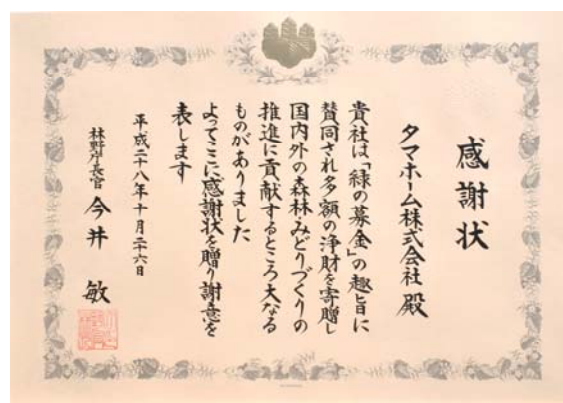 感謝状
タマホーム株式会社 殿
貴社は「緑の募金」の趣旨に
賛同され多額の浄財を寄贈し
国内外の森林みどりづくりの
推進に貢献するところ大なる
ものがありました
よってここに感謝状を贈り謝意を
表します
平成二十八年十月二十六日
林野庁長官 今井 敏